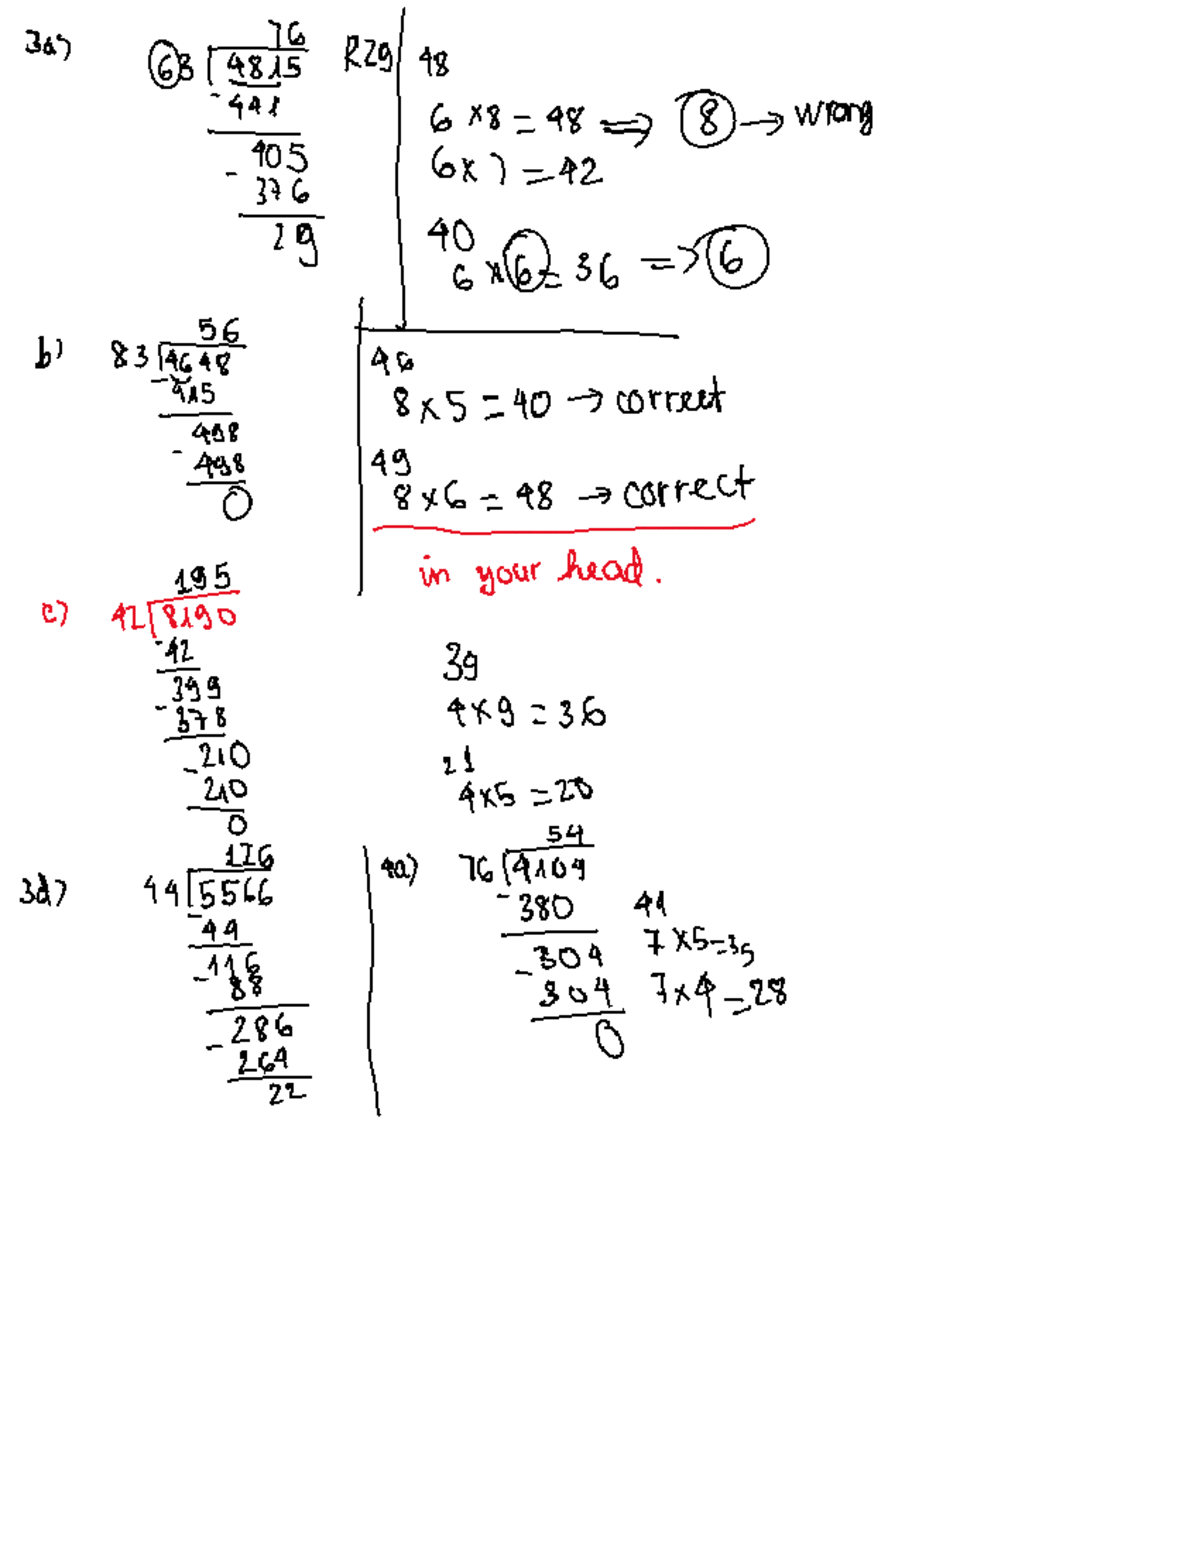 3a)
76
63 4815 R29
- 441
405
- 376
29
48
6 × 8 = 48 ⟹ 8 → wrong
6 × 7 = 42
40
6 × 6 = 36 => 6
b)
56
83 4648
- 415
498
- 498
0
46
8 × 5 = 40 → correct
49
8 × 6 = 48 → correct
in your head.
c)
195
42 8190
- 42
399
- 378
210
- 210
0
39
4 × 9 = 36
21
4 × 5 = 20
3d)
126
44 5566
- 44
116
- 88
286
- 264
22
4a)
54
76 4104
- 380
304
- 304
0
41
7 × 5 = 35
7 × 4 = 28